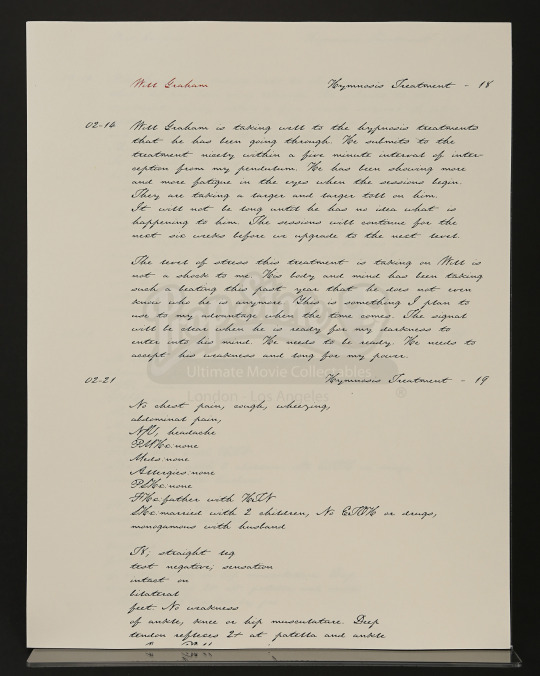 Will Graham
Hymnosis Treatment - 18
02-14 Will Graham is taking well to the hypnosis treatments
that he has been going through. He submits to the
treatment nicely within a five minute interval of inter-
ception from my pendulum. He has been showing more
and more fatigue in the eyes when the sessions begin.
They are taking a larger and larger toll on him.
It will not be long until he has no idea what is
happening to him. The sessions will continue for the
next six weeks before we upgrade to the next level.
The level of stress this treatment is taking on Will is
not a shock to me. His body and mind has been taking
such a beating this past year that he does not even
know who he is anymore. This is something I plan to
use to my advantage when the time comes. The signal
will be clear when he is ready for my darkness to
enter into his mind. He needs to be ready. He needs to
accept his weakness and long for my power.
Ultimate Movie Collectables
London - Los Angeles
®
02-21
Hymnosis Treatment - 19
No chest pain, cough, wheezing,
abdominal pain,
N/V, headache
PMHx:none
Meds:none
Allergies:none
PSHx:none
FHx:father with HTN
SHx:married with 2 children, No ETOH or drugs,
monogamous with husband
T8, straight leg
test negative; sensation
intact on
bilateral
feet No weakness
of ankle, knee or hip musculature. Deep
tendon reflexes 2+ at patella and ankle